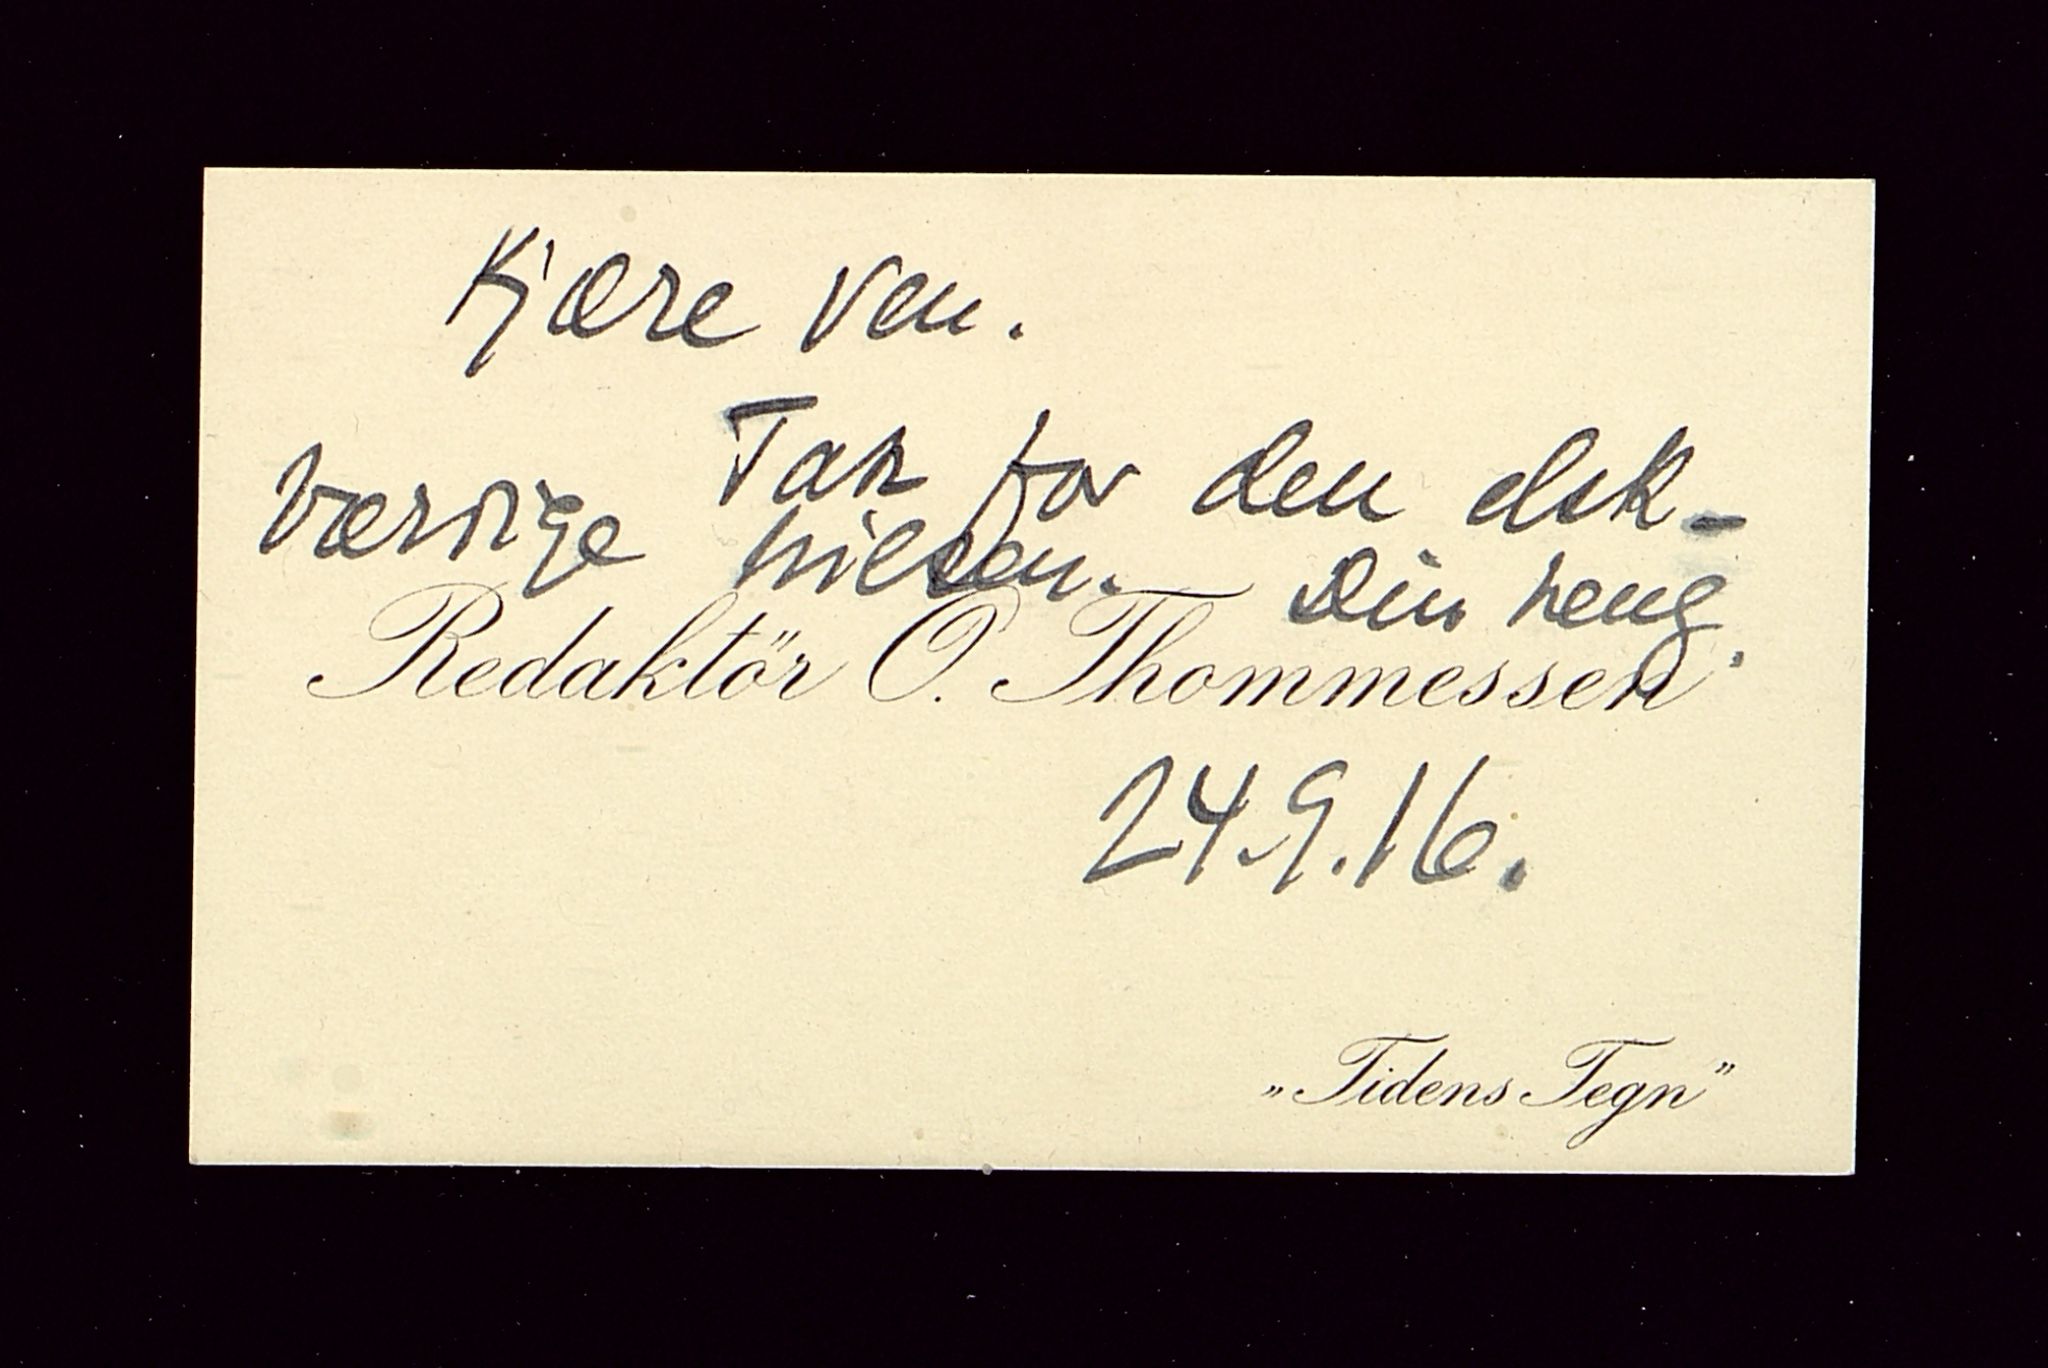 Kjære ven.
Tak for den elsk-
værdige hilsen. Din heng.
Redaktör O. Thommessen
24.9.16.
„Tidens Tegn”